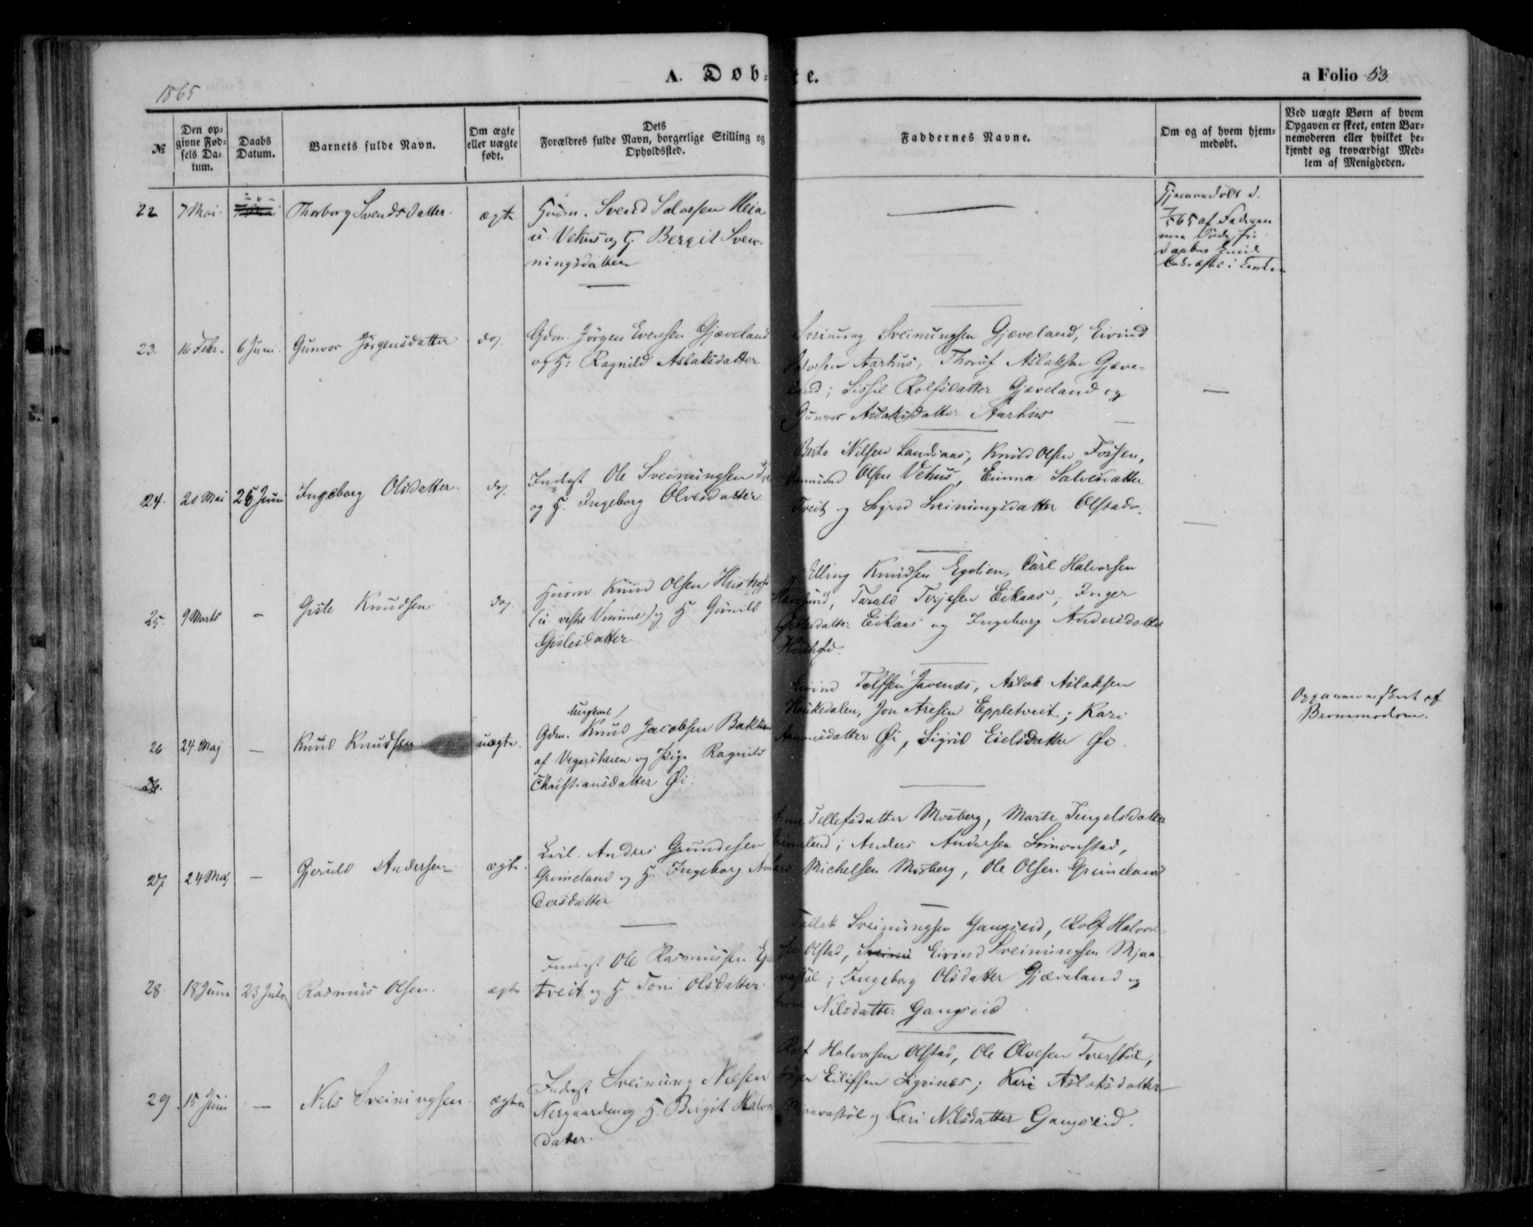 1865
A. Døb te.
a Folio 53.
№
Den op-
givne Fød-
sels Da-
tum.
Daabs
Datum.
Barnets fulde Navn.
Om ægte
eller uægte
født.
Dets
Forældres fulde Navn, borgerlige Stilling og
Opholdssted.
Faddernes Navne.
Om og af hvem hjem-
medøbt.
Ved uægte Børn af hvem
Opgaven er skeet, enten Bar-
nemoderen eller hvilket be-
kjendt og troværdigt Med-
lem af Menigheden.
22
7 Mai
Thorborg Svendsdatter
ægte
Huusm. Svend Salvesen Heia
u. Vehus og H. Bergit Sven-
ningsdatter
Hjemmedøbt d.
af Faderen
23.
16 Febr.
6 Juni
Gunvor Jørgensdatter
do.
Gdm. Jørgen Evensen Gjæveland
og H: Ragnild Aslaksdatter
Sveinung Sveinungsen Gjæveland, Eivind
Aarhus, Thoruf Aslaksen Gjæve-
land; Sissel Rolfsdatter Gjæveland og
Gunvor Aslaksdatter Aarhus
24.
20 Mai
25 Juni
Ingeborg Olsdatter
do.
Inderst Ole Sveinungsen
og H. Ingeborg Olvesdatter
Berto Nilsen Landaas, Knud Olsen Fossen,
Olsen Vehus, Emma Salvesdatter
Tveit og Sigrid Sveinungsdatter Olstad.
25.
9 Marts
—
Gisle Knudsen
do.
Huusm. Knud Olsen
(u. vestre Vimme) og H. Gunild
Gislesdatter
Elling Knudsen Egdtien, Carl Halvorsen
Tarald Terjesen Eikaas; Inger
Eikaas og Ingeborg Andersdatter
26
24 Maj
—
Knud Knudsen
uægte.
Ungkarl
Gdm. Knud Jacobsen Bakken
af Vegarsheien og Pige Ragnild
Christiansdatter Øi.
Eivind Tolfsen Javenes, Aslak Aslaksen
Haukedalen, Jon Aresen Eppletveit; Kari
datter Øi, Sigrid Eielsdatter Øi.
Opgaven er skeet af
Barnemoderen.
26.
27
24 Maj
—
Gjeruld Andersen
ægte
Andres Grundesen
Grimeland og H. Ingeborg An-
dersdatter
Tellefsdatter Mosberg, Marte Ingelsdatter
Grimeland; Anders Andersen Simonstad,
Michelsen Mosberg, Ole Olsen Grimeland
28.
18 Juni
23 Juli
Rasmus Olsen.
ægte
Inderst Ole Rasmussen
tveit og H. Toni Olsdatter
Tallak Sveinungsen Gangseid, Rolf Halvor-
sen Olstad, Eivind Sveinungsen Skjæ-
; Ingeborg Olsdatter Gjæveland og
Nilsdatter Gangseid
29
15 Juni
—
Nils Sveinungsen
ægte
Inderst Sveinung Nilsen
Nergaarden og H. Birgit Halvors
datter.
Rolf Halvorsen Olstad, Ole Olvesen
Eilifsen Sigrines; Kari Aslaksdatter
og Kari Nilsdatter Gangseid.